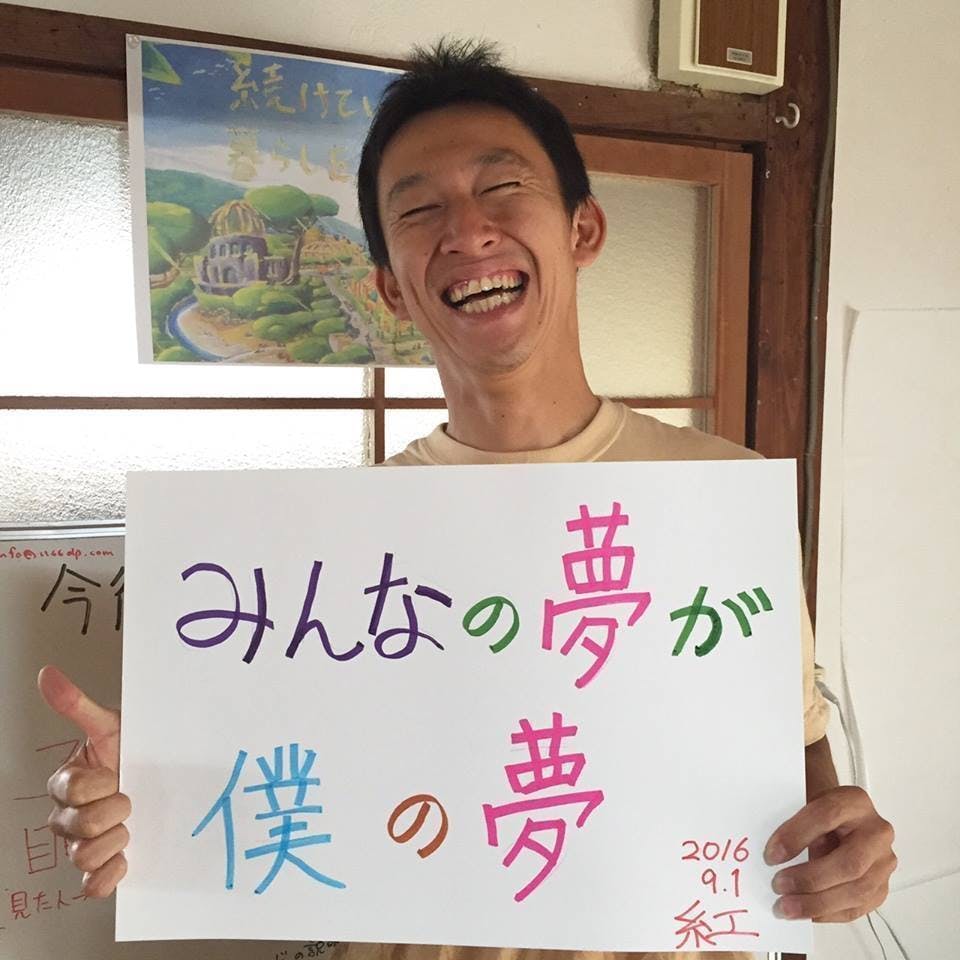 続けてい
暮らしを
今
見た人
みんなの夢が
僕の夢
2016
9.1
紅